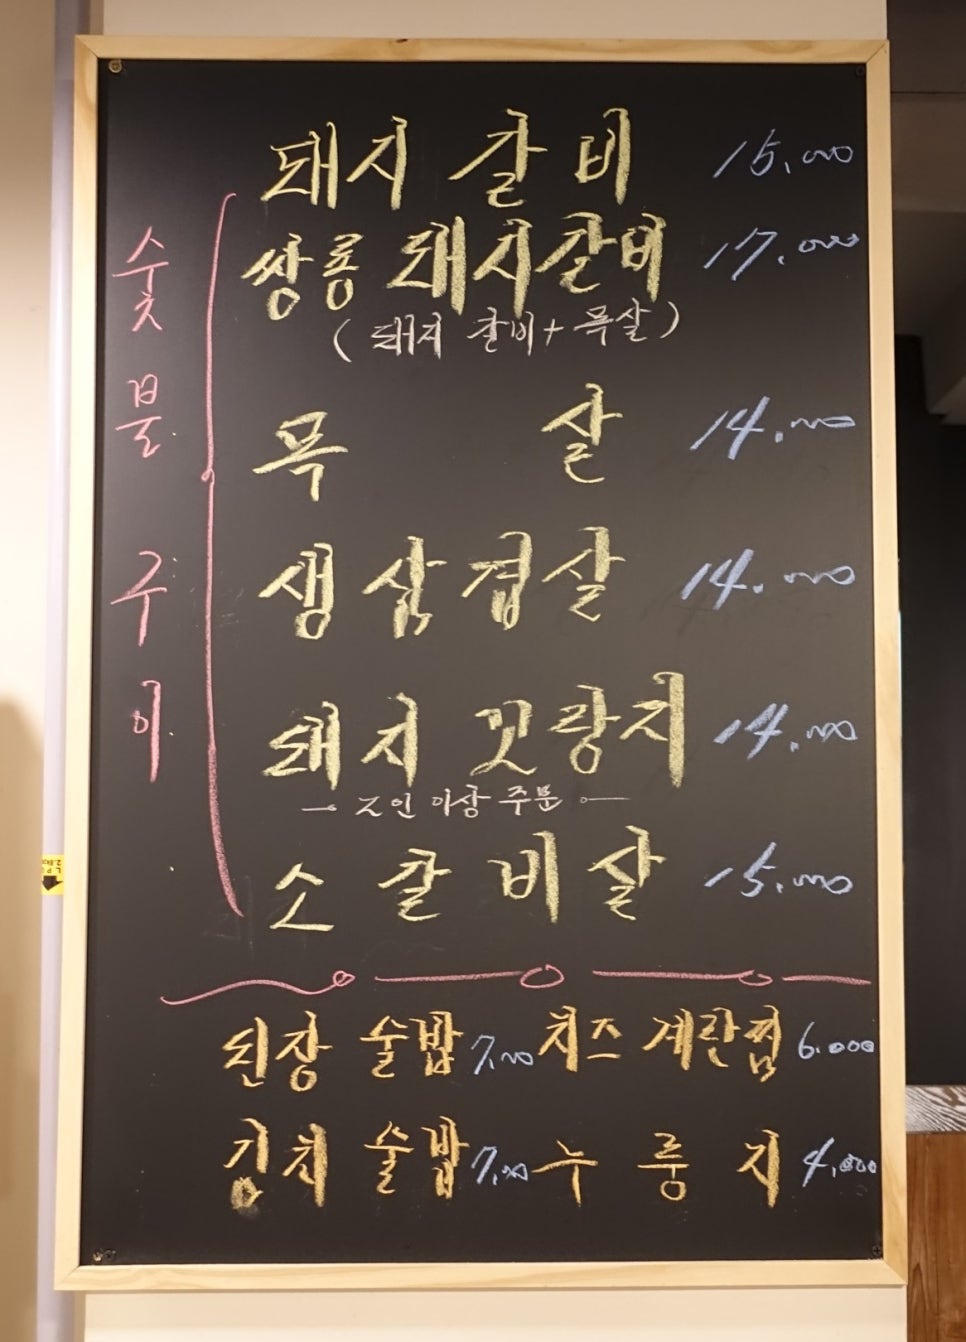 숯불구이
돼지 갈비 15.000
쌍룡 돼지갈비 17.000
(돼지 갈비+목살)
목 살 14.000
생삼겹살 14.000
돼지 꼬랑지 14.000
2인 이상 주문
소갈비살 15.000
된장 술밥 7.000 치즈 계란찜 6.000
김치 술밥 7.000 누룽지 4.000